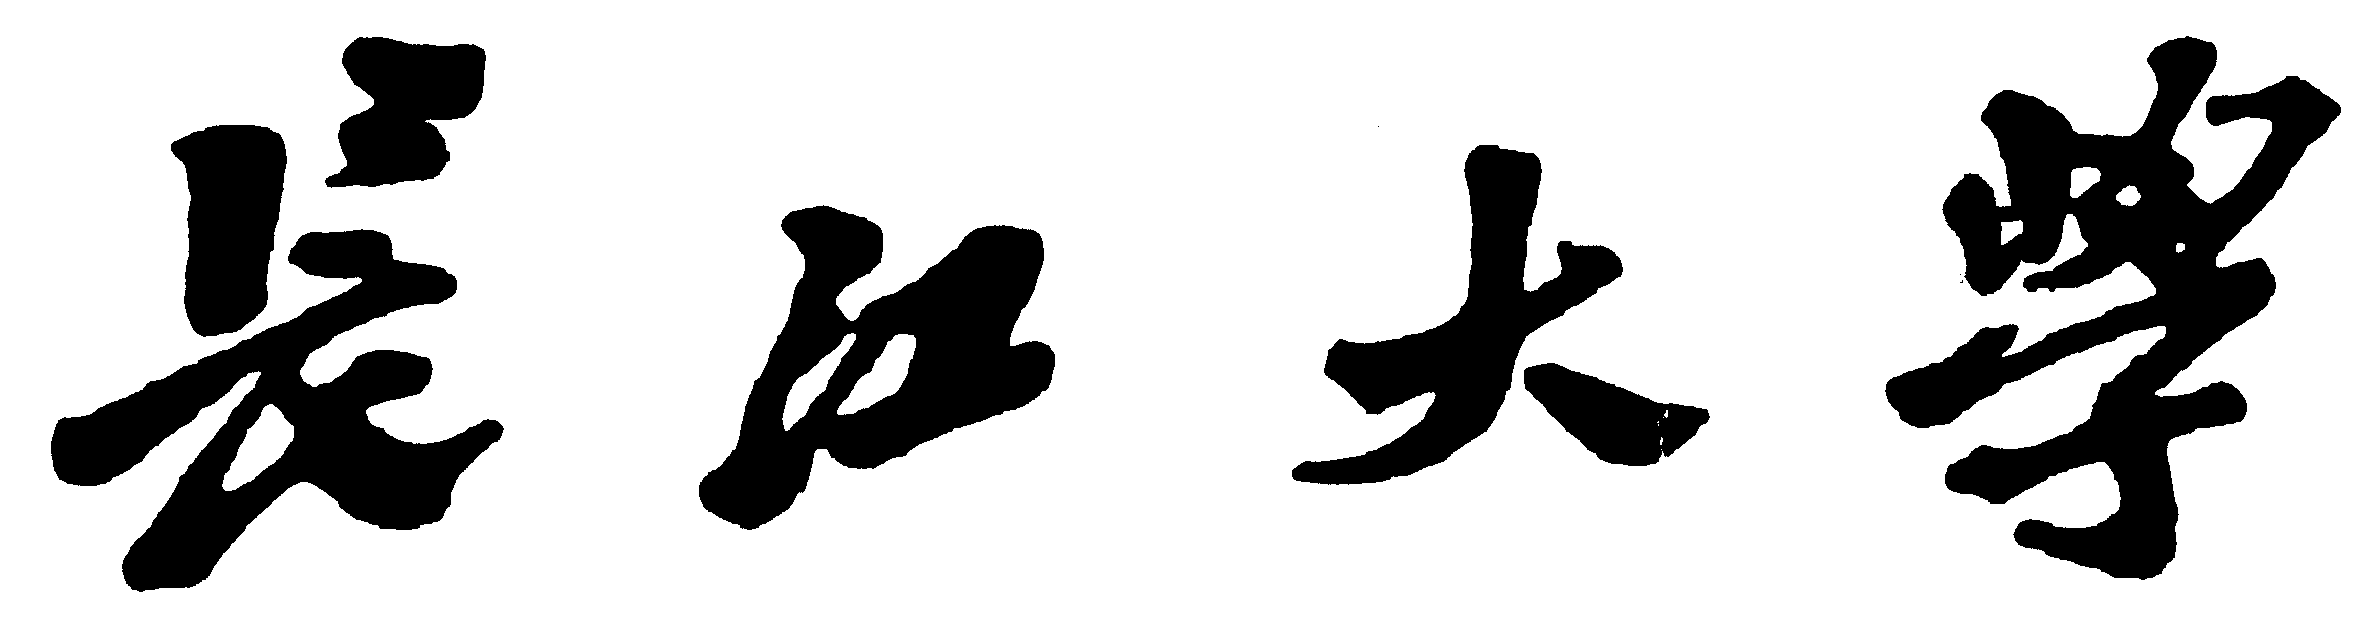 長江大學